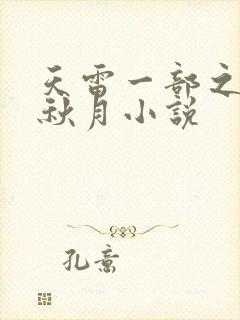 天雷一部之
秋月小説
孔意